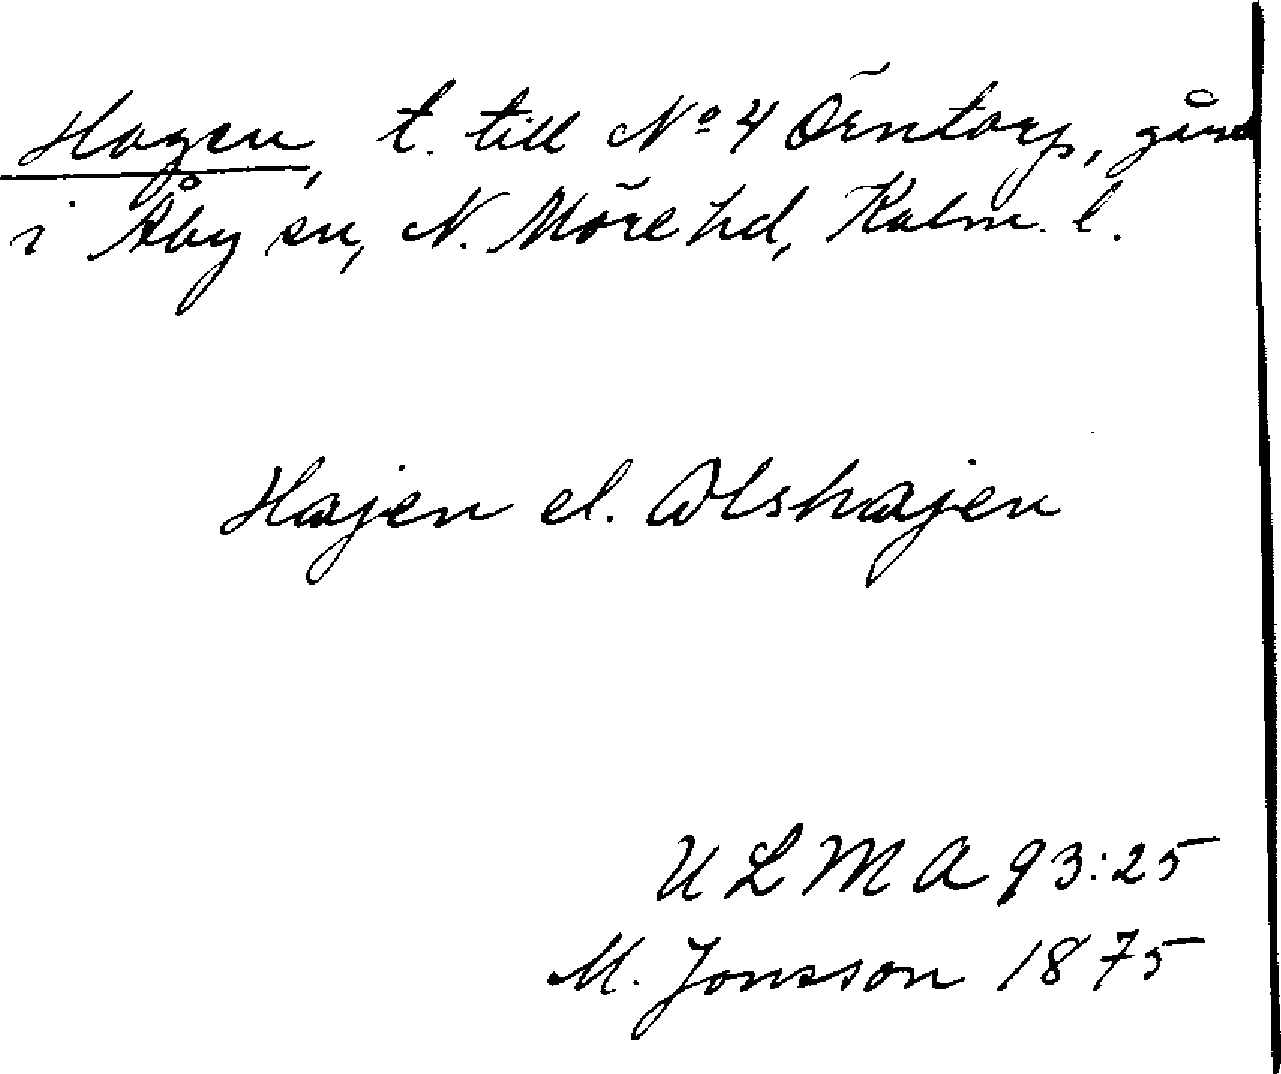 Hagen, t. till Nº 4 Örntorp, gård
i Åby sn, N. Möre hd, Kalm. l.
Hajen el. Olshajen
U L M A 93:25
M. Jonsson 1875